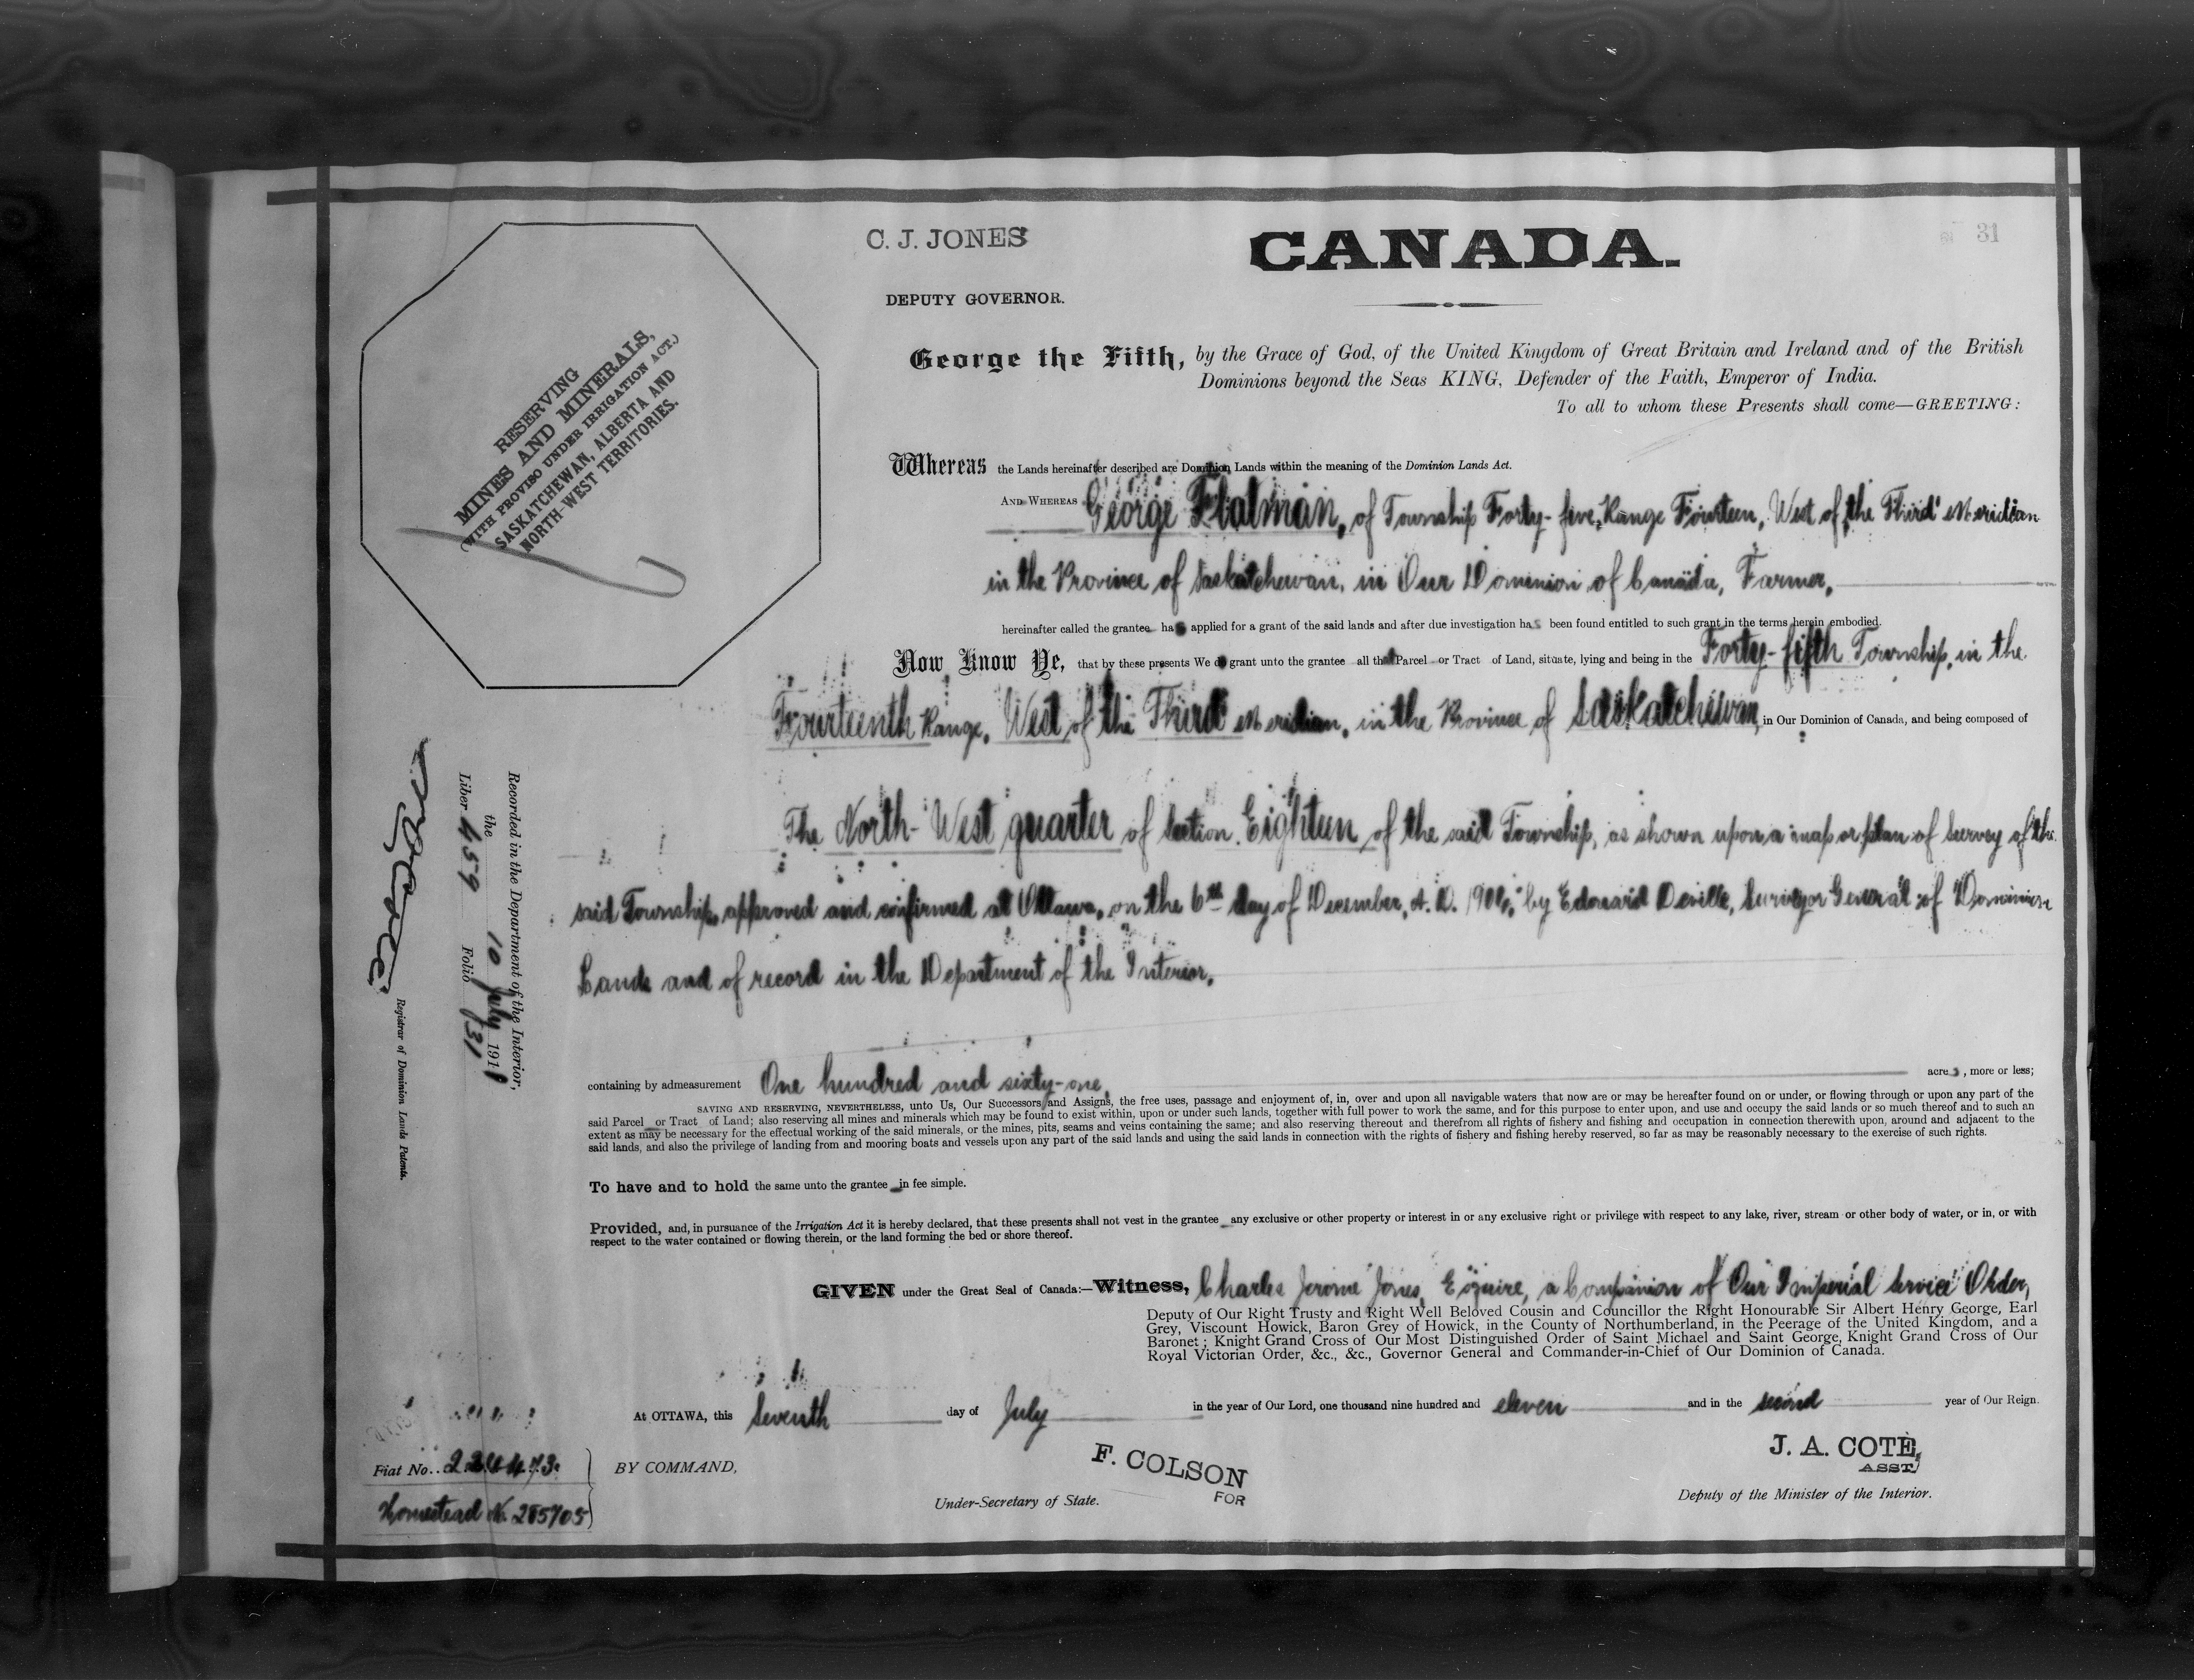 C. J. JONES
CANADA.
31
DEPUTY GOVERNOR.
RESERVING
MINES AND MINERALS,
(WITH PROVISO UNDER IRRIGATION ACT.)
SASKATCHEWAN, ALBERTA AND
NORTH-WEST TERRITORIES.
George the Fifth, by the Grace of God, of the United Kingdom of Great Britain and Ireland and of the British
Dominions beyond the Seas KING, Defender of the Faith, Emperor of India.
To all to whom these Presents shall come—GREETING:
Whereas the Lands hereinafter described are Dominion Lands within the meaning of the Dominion Lands Act.
AND WHEREAS George Flatman, of Township Forty-five, Range Fourteen, West of the Third Meridian
in the Province of Saskatchewan, in Our Dominion of Canada, Farmer,
hereinafter called the grantee has applied for a grant of the said lands and after due investigation has been found entitled to such grant in the terms herein embodied.
Now Know Ye, that by these presents We do grant unto the grantee all that Parcel or Tract of Land, situate, lying and being in the Forty-fifth Township, in the
Fourteenth Range, West of the Third Meridian, in the Province of Saskatchewan, in Our Dominion of Canada, and being composed of
The North-West quarter of Section Eighteen of the said Township, as shown upon a map or plan of Survey of the
said Township approved and confirmed at Ottawa, on the 6th day of December, A. D. by Edouard Deville, Surveyor General of Dominion
Lands and of record in the Department of the Interior.
containing by admeasurement One hundred and sixty-one, acres, more or less;
SAVING AND RESERVING, NEVERTHELESS, unto Us, Our Successors and Assigns, the free uses, passage and enjoyment of, in, over and upon all navigable waters that now are or may be hereafter found on or under, or flowing through or upon any part of the
said Parcel or Tract of Land; also reserving all mines and minerals which may be found to exist within, upon or under such lands, together with full power to work the same, and for this purpose to enter upon, and use and occupy the said lands or so much thereof and to such an
extent as may be necessary for the effectual working of the said minerals, or the mines, pits, seams and veins containing the same; and also reserving thereout and therefrom all rights of fishery and fishing and occupation in connection therewith upon, around and adjacent to the
said lands, and also the privilege of landing from and mooring boats and vessels upon any part of the said lands and using the said lands in connection with the rights of fishery and fishing hereby reserved, so far as may be reasonably necessary to the exercise of such rights.
To have and to hold the same unto the grantee in fee simple.
Provided, and, in pursuance of the Irrigation Act it is hereby declared, that these presents shall not vest in the grantee any exclusive or other property or interest in or any exclusive right or privilege with respect to any lake, river, stream or other body of water, or in, or with
respect to the water contained or flowing therein, or the land forming the bed or shore thereof.
GIVEN under the Great Seal of Canada:—Witness, Charles Jerome Jones, Esquire, a Companion of Our Imperial Service Order,
Deputy of Our Right Trusty and Right Well Beloved Cousin and Councillor the Right Honourable Sir Albert Henry George, Earl
Grey, Viscount Howick, Baron Grey of Howick, in the County of Northumberland, in the Peerage of the United Kingdom, and a
Baronet; Knight Grand Cross of Our Most Distinguished Order of Saint Michael and Saint George, Knight Grand Cross of Our
Royal Victorian Order, &c., &c., Governor General and Commander-in-Chief of Our Dominion of Canada.
At OTTAWA, this Seventh day of July in the year of Our Lord, one thousand nine hundred and eleven and in the second year of Our Reign.
BY COMMAND,
F. COLSON
FOR
Under-Secretary of State.
J. A. COTÉ,
ASST.
Deputy of the Minister of the Interior.
Fiat No.
Homestead No. 285705
Recorded in the Department of the Interior,
the 10 July 1911
Liber 459 Folio 31
Registrar of Dominion Lands Patents.